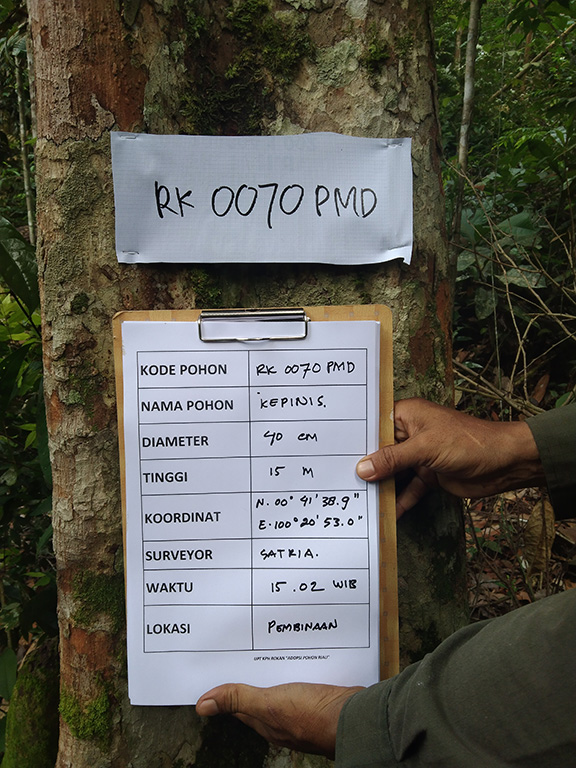 RK 0070 PMD
KODE POHON RK 0070 PMD
NAMA POHON KEPINIS.
DIAMETER 40 cm
TINGGI 15 M
KOORDINAT N. 00° 41' 38.9"
E. 100° 20' 53.0"
SURVEYOR SATRIA.
WAKTU 15.02 WIB
LOKASI PEMBINAAN
UPT KPH ROKAN "ADOPSI POHON RIAU"